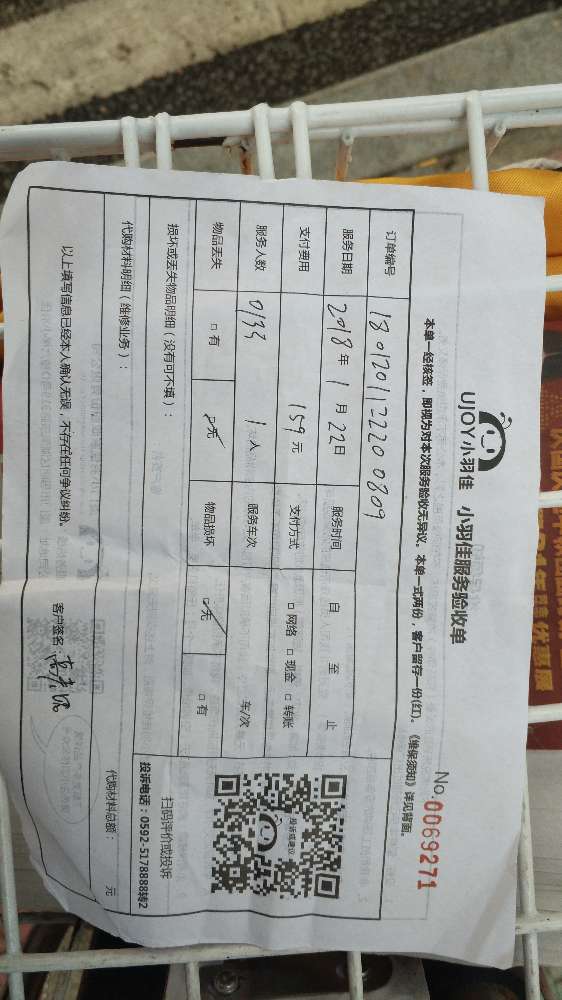 UJOY小羽佳 小羽佳服务验收单
No.0069271
本单一经核签，即视为对本次服务验收无异议。本单一式两份，客户留存一份(红)。《维保须知》详见背面。
订单编号 180120112220 0809
服务日期 2018年1月22日 服务时间 自 至 止
支付费用 159元 支付方式 □网络 □现金 □转账
服务人数 0133 1人 服务车次 车/次
物品丢失 □有 □无 物品损坏 □无 □有
投诉或建议
扫码评价或投诉
投诉电话：0592-5178888转2
损坏或丢失物品明细（没有可不填）：
代购材料明细（维修业务）： 代购材料总额： 元
以上填写信息已经本人确认无误，不存在任何争议纠纷。 客户签名：